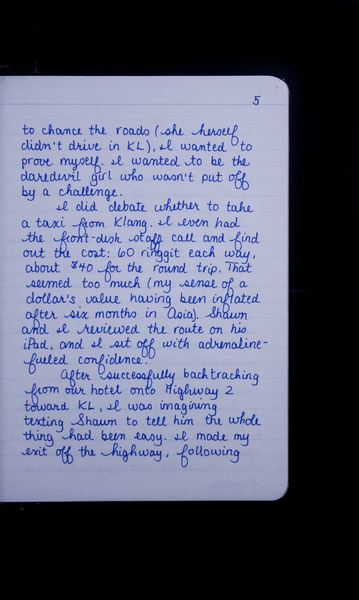 5
to chance the roads (she herself
didn't drive in KL), I wanted to
prove myself. I wanted to be the
daredevil girl who wasn't put off
by a challenge.
I did debate whether to take
a taxi from Klang. I even had
the front-desk staff call and find
out the cost: 60 ringgit each way,
about $40 for the round trip. That
seemed too much (my sense of a
dollar's value having been inflated
after six months in Asia). Shawn
and I reviewed the route on his
iPad, and I set off with adrenaline-
fueled confidence.
After successfully backtracking
from our hotel onto Highway 2
toward KL, I was imagining
texting Shawn to tell him the whole
thing had been easy. I made my
exit off the highway, following